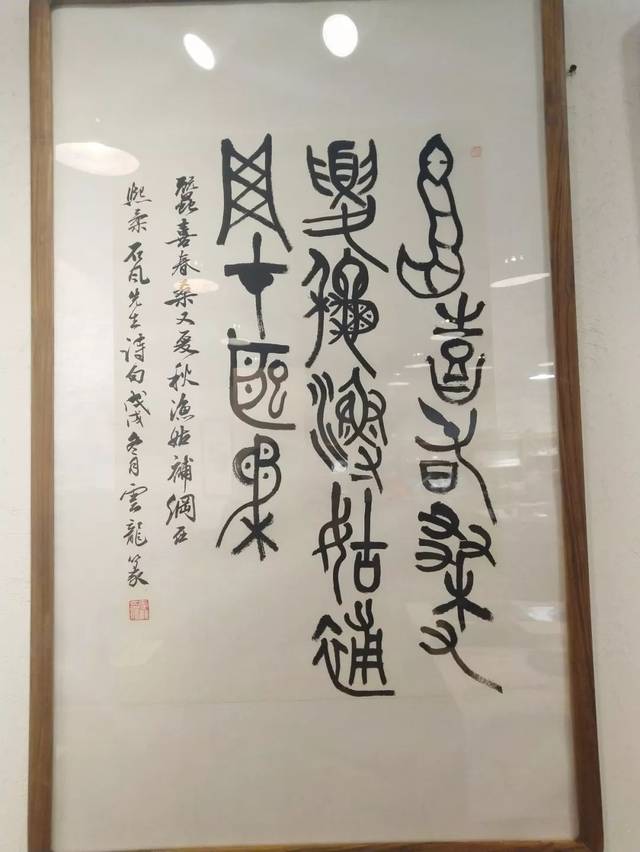 蠶喜春桑又
夏秋漁姑補
網在熙
蠶喜春桑又夏秋漁姑補網在
熙 石风先生诗句戊戌冬月雲龍篆